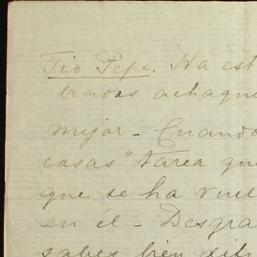 Tio Pepe. Ha est
brados achaque
mejor - Cuando
cosas" tarea que
que se ha vuel
en él - Desgra
sabes bien difi